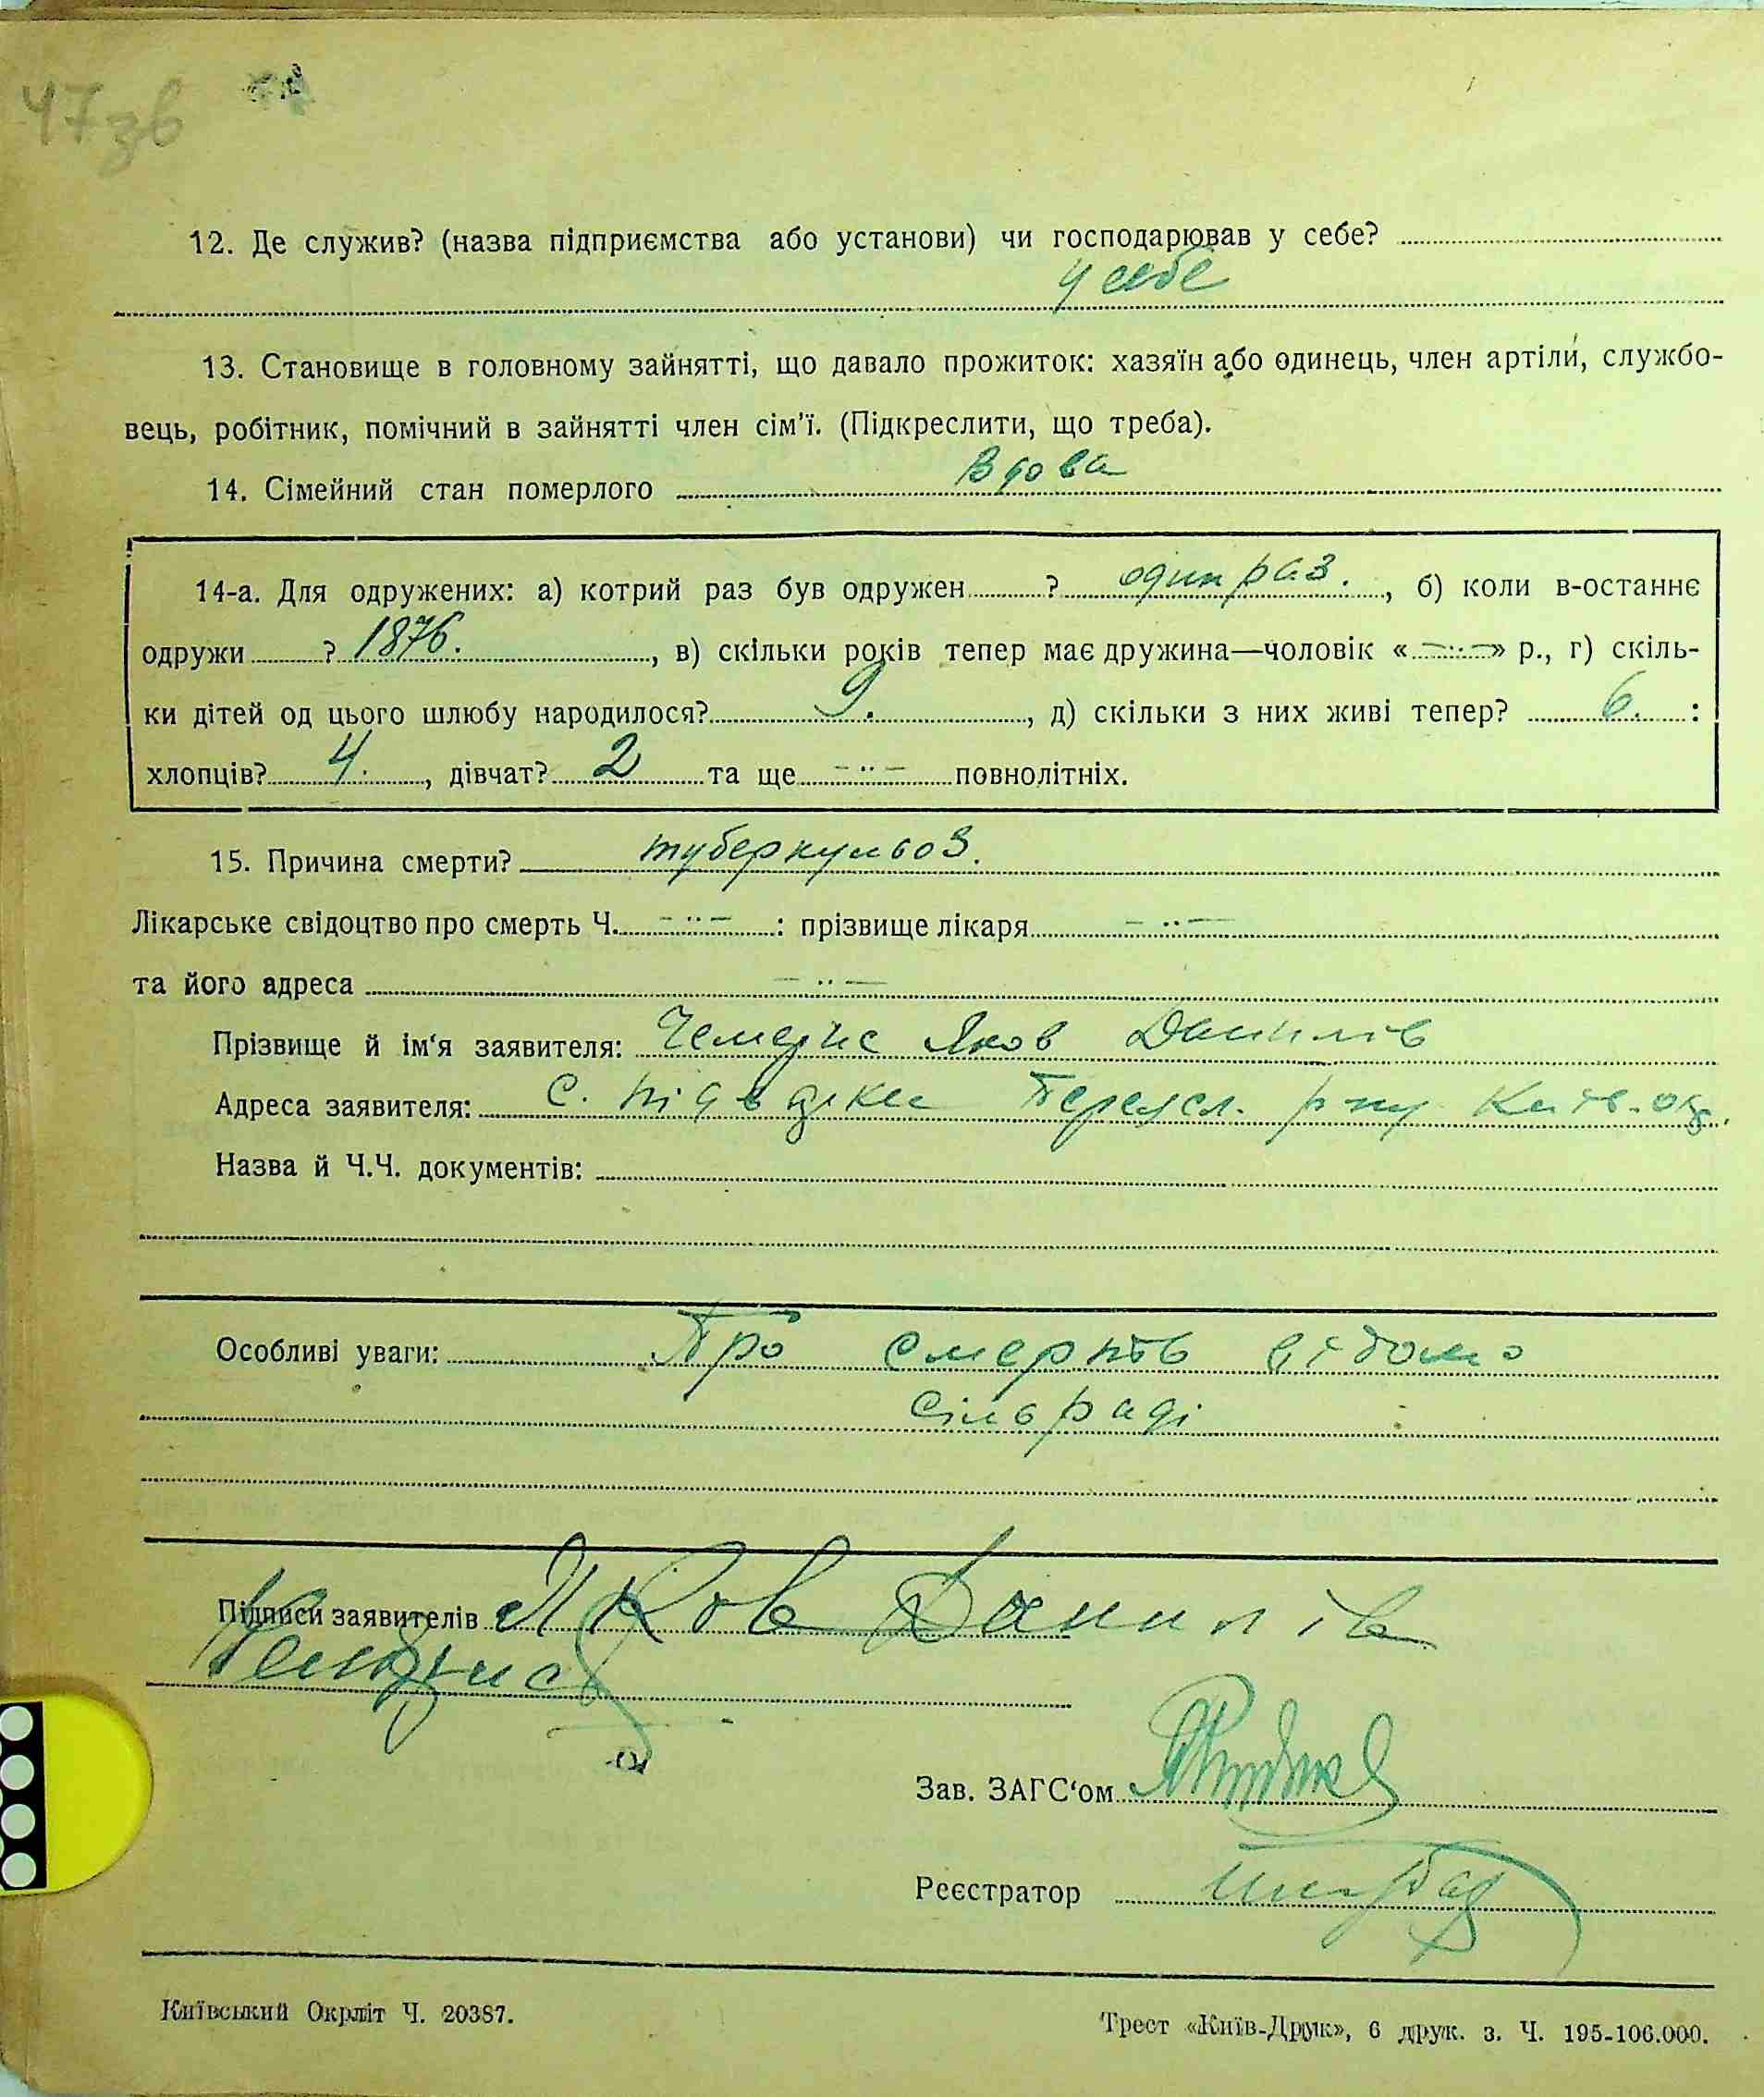 47зв
12. Де служив? (назва підприємства або установи) чи господарював у себе?
у себе
13. Становище в головному зайнятті, що давало прожиток: хазяїн або одинець, член артіли, службо-
вець, робітник, помічний в зайнятті член сім'ї. (Підкреслити, що треба).
14. Сімейний стан померлого Вдова
14-а. Для одружених: а) котрий раз був одружен ? один раз. , б) коли в-останнє
одружи ? 1876. , в) скільки років тепер має дружина—чоловік « — » р., г) скіль-
ки дітей од цього шлюбу народилося? 9. , д) скільки з них живі тепер? 6. :
хлопців? 4. , дівчат? 2 та ще — повнолітніх.
15. Причина смерти? туберкульоз.
Лікарське свідоцтво про смерть Ч. — : прізвище лікаря —
та його адреса —
Прізвище й ім'я заявителя: Чемерис Яков Данилів
Адреса заявителя: с. Підварки Переясл. р-ну Київ. окр.
Назва й Ч.Ч. документів:
Особливі уваги: Про смерть відомо
сільраді
Підписи заявителів Яков Данилів
Чемерис
Зав. ЗАГС'ом
Реєстратор
Київський Окрліт Ч. 20387.
Трест «Київ-Друк», 6 друк. з. Ч. 195-106.000.